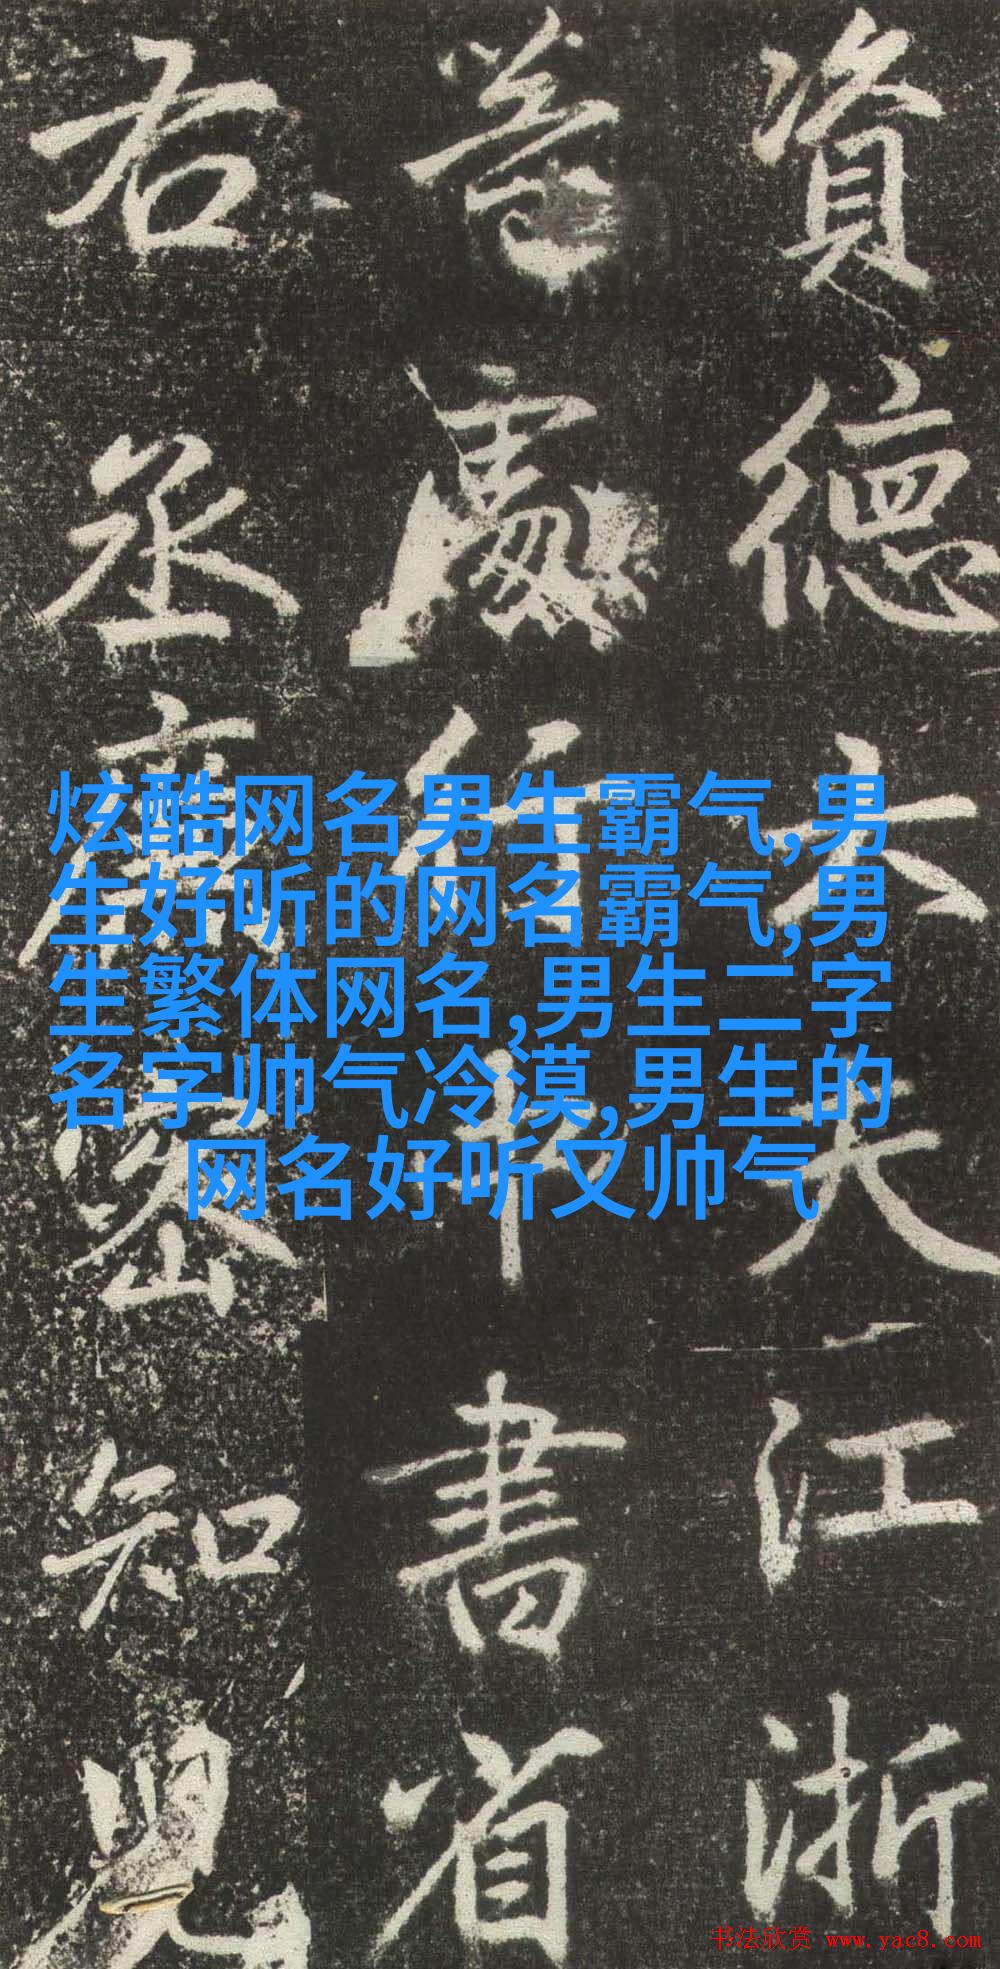 炫酷网名男生霸气,男
生好听的网名霸气,男
生繁体网名,男生二字
名字帅气冷漠,男生的
网名好听又帅气
資德大夫江浙
等處行中書省
右丞廉密知兒
书法欣赏 www.yac8.com